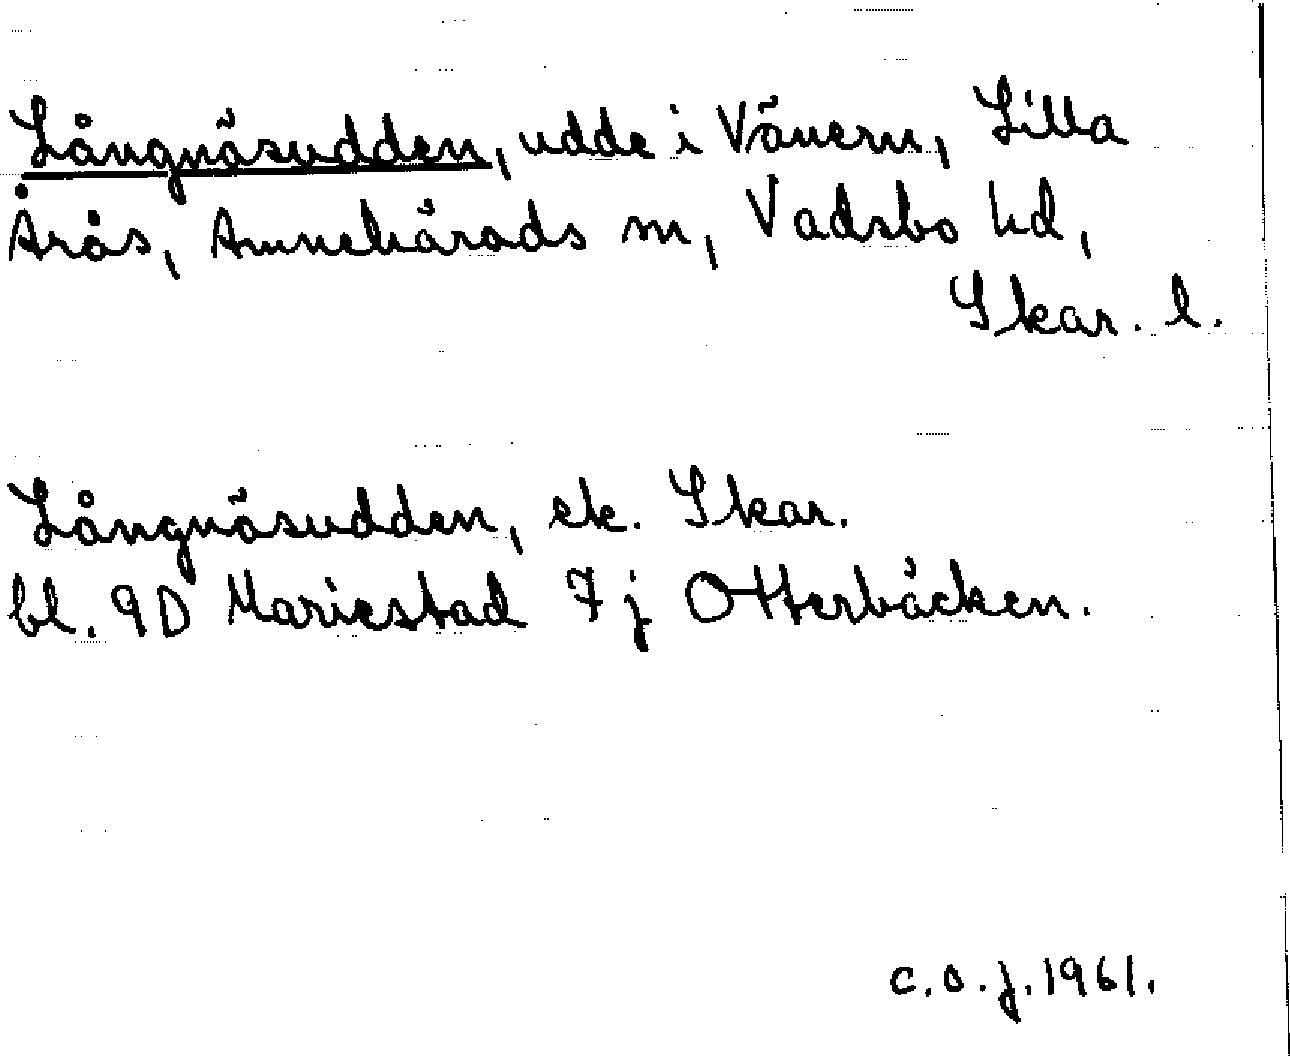 Långnäsudden, udde i Vänern, Lilla
Årås, Amnehärads sn, Vadsbo hd,
Skar. l.
Långnäsudden, ek. Skar.
bl. 9D Mariestad 7j Otterbäcken.
C.O.J. 1961.